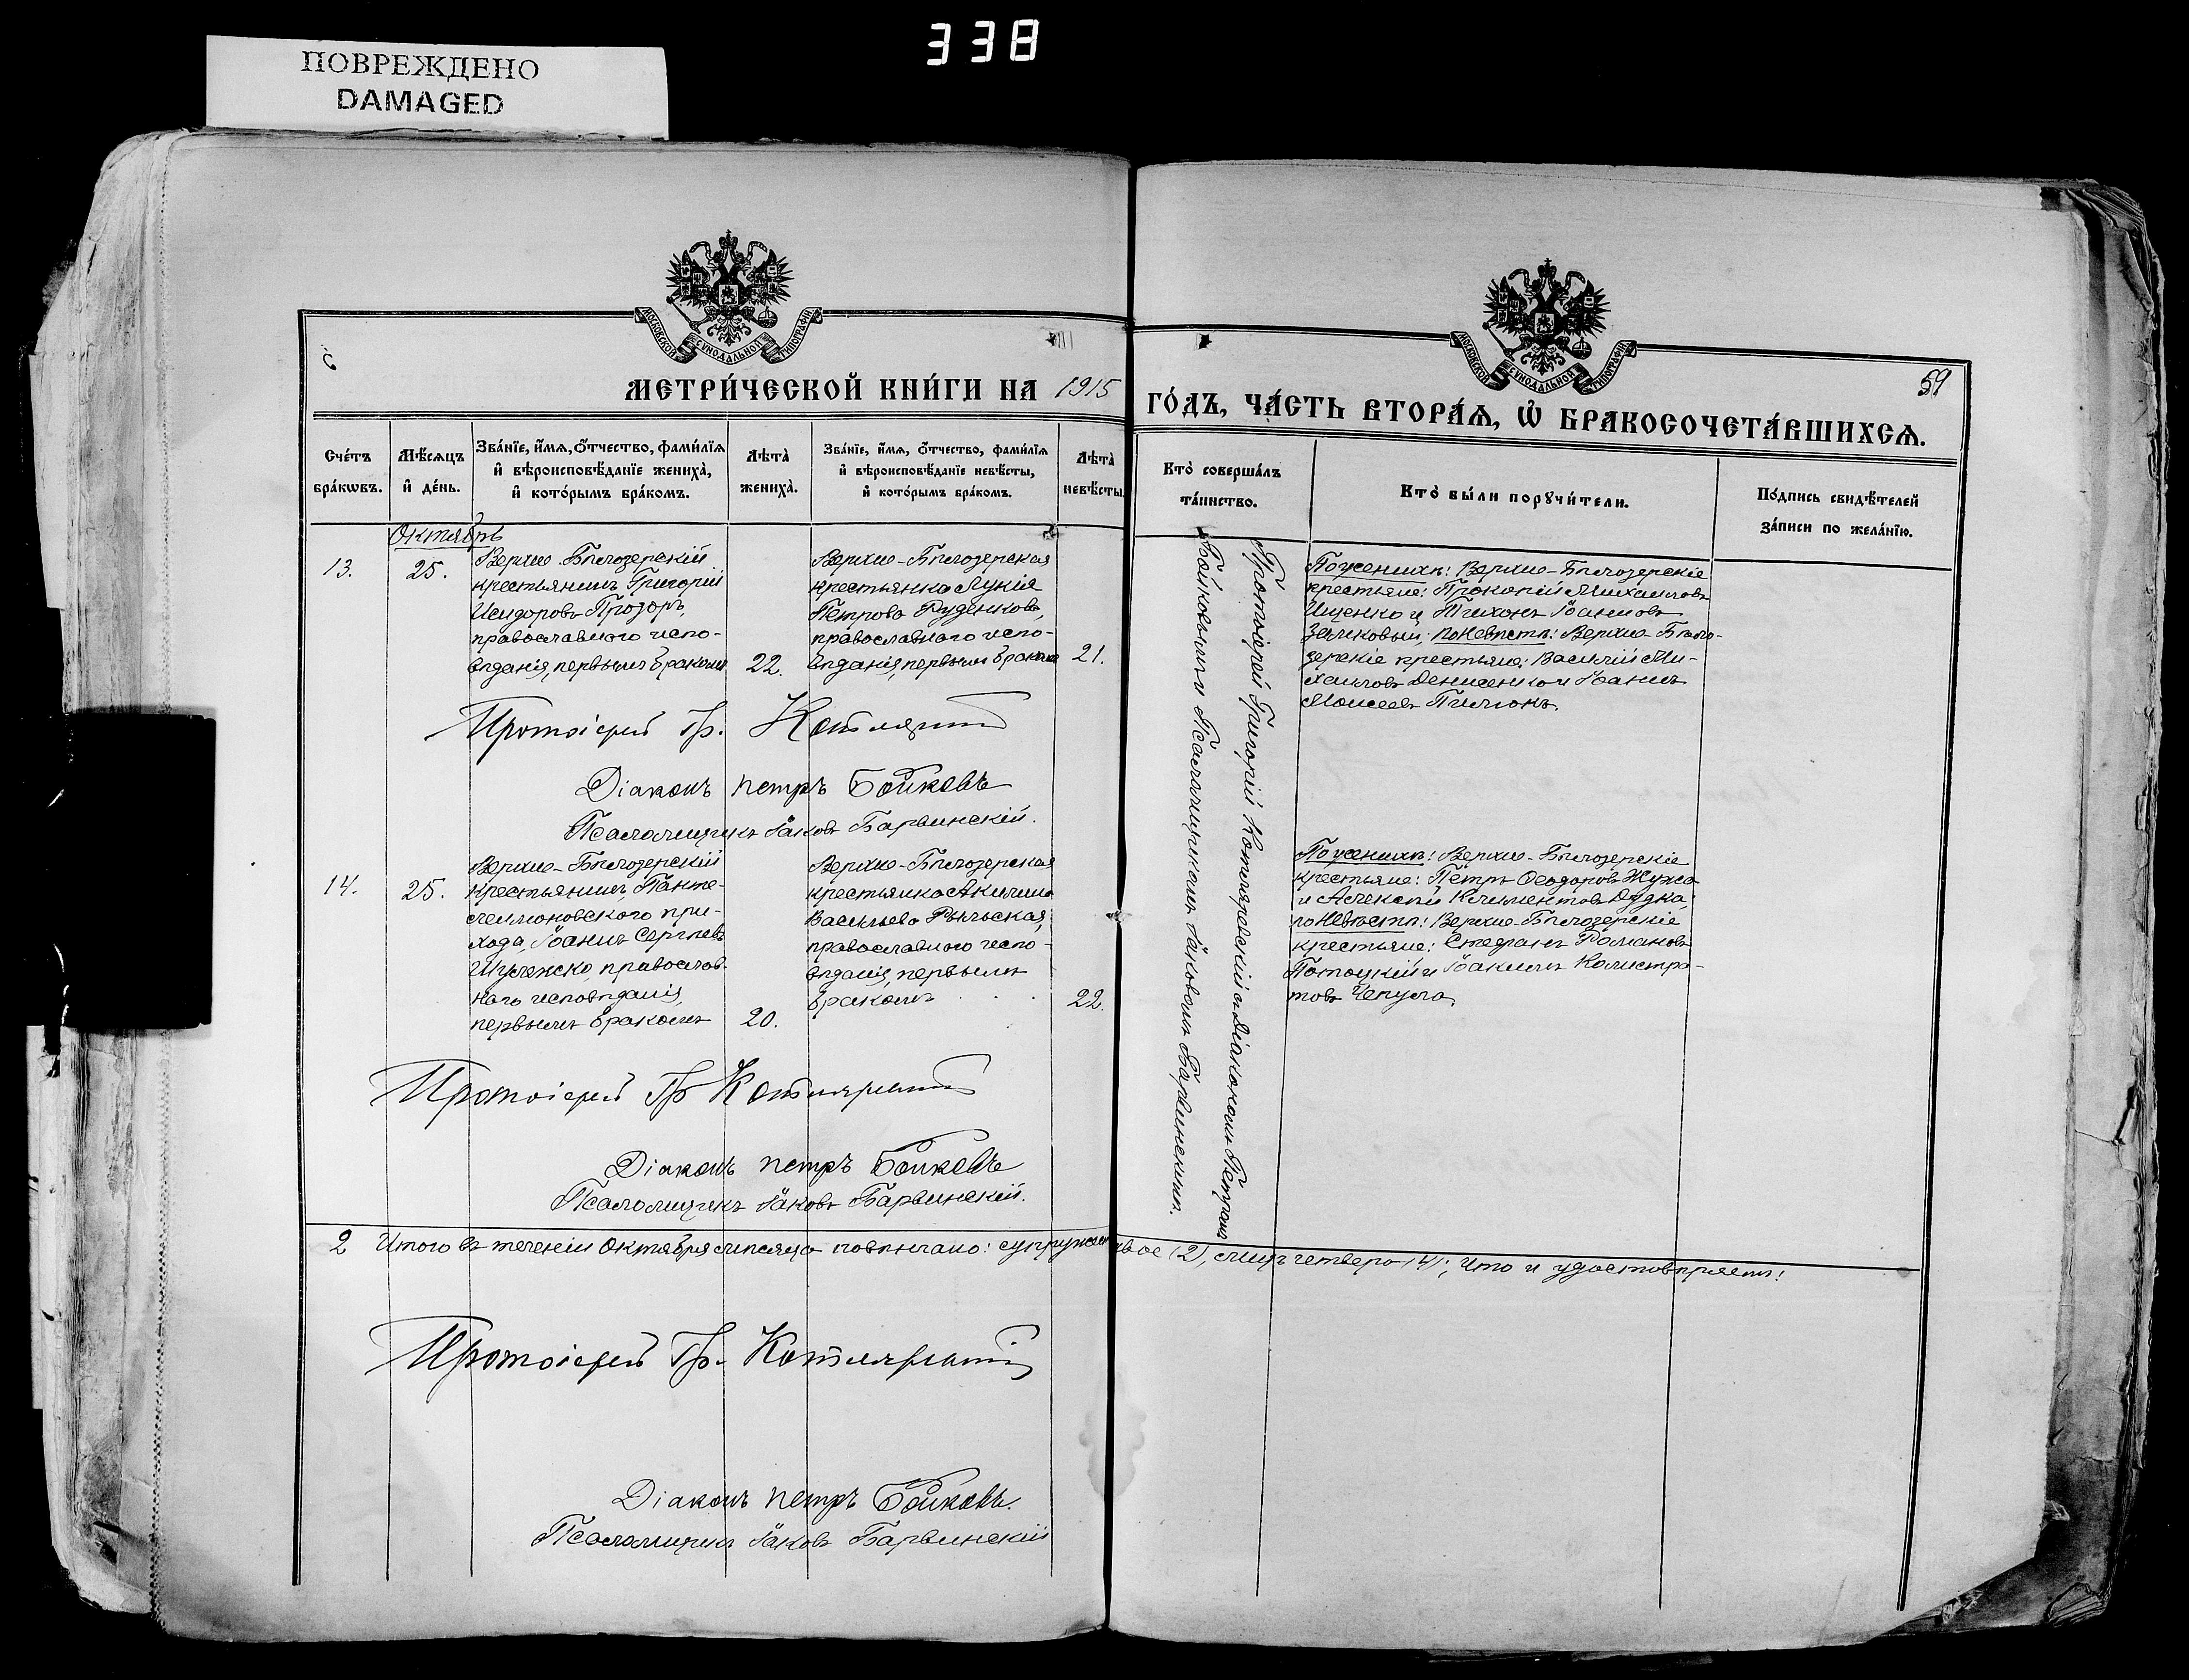 338
ПОВРЕЖДЕНО
DAMAGED
МОСКОВСКОЙ СУНОДАЛЬНОЙ ТИПОГРАФІИ
МОСКОВСКОЙ СУНОДАЛЬНОЙ ТИПОГРАФІИ
59
МЕТРИ́ЧЕСКОЙ КНИ́ГИ НА 1915
ГО́ДЪ, ЧА́СТЬ ВТОРА́Я, Ѿ БРАКОСОЧЕТА́ВШИХСЯ.
Сче́тъ
бра́кωвъ.
Мѣ́сяцъ
и҆ де́нь.
Зва́нїе, и҆́мя, ѻ҆́тчество, фами́лїя
и҆ вѣроисповѣ́данїе жениха̀,
и҆ кото́рымъ бра́комъ.
Лѣта̀
жениха̀.
Зва́нїе, и҆́мя, ѻ҆́тчество, фами́лїя
и҆ вѣроисповѣ́данїе невѣ́сты,
и҆ кото́рымъ бра́комъ.
Лѣта̀
невѣ́сты.
Кто̀ соверша́лъ
та́инство.
Кто̀ бы́ли порꙋчи́тели.
По́дпись свидѣ́телей
за́писи по жела́нїю.
Октябрь
13.
25.
Верхне-Бѣлозерскій
крестьянинъ Григорій
Исидоровъ Прозоръ,
православнаго испо-
вѣданія, первымъ бракомъ
22.
Верхне-Бѣлозерская
крестьянка Лукія
Петрова Руденкова,
православнаго испо-
вѣданія, первымъ бракомъ
21.
Протоіерей Григорій Котляревскій съ Діакономъ Петромъ
Бойковымъ и Псаломщикомъ Іаковомъ Барвинскимъ.
По женихѣ: Верхне-Бѣлозерскіе
крестьяне: Прокопій Михаиловъ
Ищенко и Тихонъ Іоанновъ
по невѣстѣ: Верхне-Бѣло-
зерскіе крестьяне: Василій Ми-
хаиловъ Денисенко и Іоаннъ
Моисеевъ Пилюкъ.
Протоіерей Гр. Котляревскій
Діаконъ Петръ Бойковъ
Псаломщикъ Іаковъ Барвинскій.
14.
25.
Верхне-Бѣлозерскій
крестьянинъ, Панте-
леимоновскаго при-
хода, Іоаннъ Сергѣевъ
православ-
наго исповѣданія,
первымъ бракомъ
20.
Верхне-Бѣлозерская
крестьянка Акилина
Васильева Рыльская,
православнаго испо-
вѣданія, первымъ
бракомъ
22.
По женихѣ: Верхне-Бѣлозерскіе
крестьяне: Петръ Ѳеодоровъ Жужа
и Алексій Климентовъ Дудка,
по невѣстѣ: Верхне-Бѣлозерскіе
крестьяне: Стефанъ Романовъ
Потоцкій и Іоакимъ Калистра-
товъ Чепула.
Протоіерей Гр. Котляревскій
Діаконъ Петръ Бойковъ
Псаломщикъ Іаковъ Барвинскій.
2 Итого въ теченіи Октября мѣсяца повѣнчано: супружествъ двое (2), лицъ четверо (4); что и удостовѣряемъ:
Протоіерей Гр. Котляревскій
Діаконъ Петръ Бойковъ.
Псаломщикъ Іаковъ Барвинскій